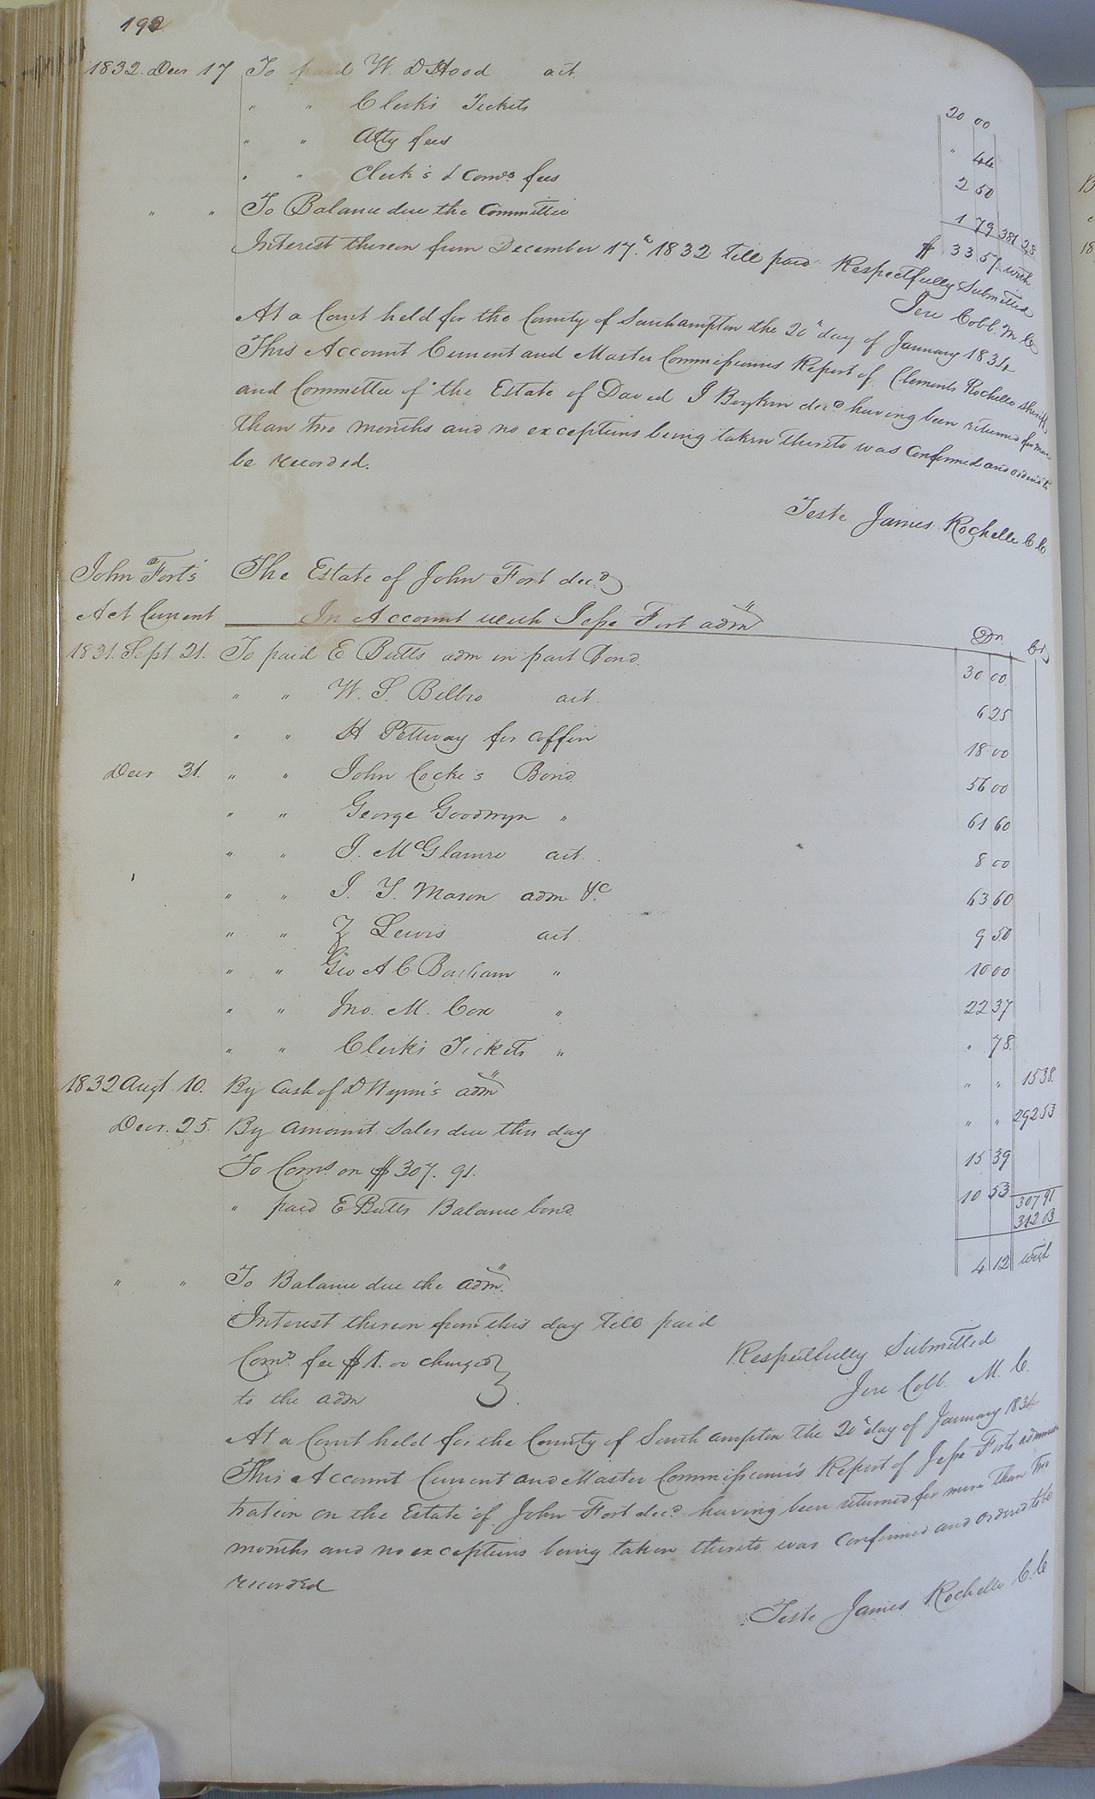 192
1832. Decr 17 To paid W. D Hood act
" " Clerks Tickets 20 00
" " Atty fees " 44
" " Clerk's & Coms fees 2 50
" " To Balance due the Committee 1 79 381 28
Interest thereon from December 17th 1832 till paid $ 33 51 with
Respectfully Submitted
Jere Cobb M C
At a Court held for the County of Southampton the 20th day of January 1834
This Account Current and Master Commissioners Report of Clements Rochelle Sheriff
and Committee of the Estate of David J Boykin decd having been returned for more
than two months and no exceptions being taken thereto was Confirmed and ordered to
be recorded.
Teste James Rochelle C C
John Fort's The Estate of John Fort decd
Act Current In Account with Jesse Fort adm Dr Cr
1831. Sept 21. To paid E Butts adm in part Bond 30 00
" " W. S. Bilbro act 6 25
" " H Pettway for coffin 18 00
Decr 31. " " John Cocke's Bond 56 00
" " George Goodwyn " 61 60
" " J. McGlamre act. 8 00
" " J. Y. Mason adm &c 63 60
" " Z Lewis act 9 50
" " Geo A C Barham " 10 00
" " Jno. M. Cox " 22 37
" " Clerks Tickets " " 78
1832 Augt 10. By Cash of D Wynn's adm " " 15 38
Decr. 25. By amount Sales due this day " " 292 53
To Coms on $307. 91. 15 39
" paid E Butts Balance bond 10 53 307 91
312 03
" " To Balance due the adm. 4 12 with
Interest thereon from this day till paid
Comr fee $1. or charged Respectfully Submitted
to the adm Jere Cobb M. C.
At a Court held for the County of Southampton the 20th day of January 1834
This Account Current and Master Commissioner's Report of Jesse Forts adminis
tration on the Estate of John Fort decd having been returned for more than two
months and no exceptions being taken thereto was Confirmed and ordered to be
recorded
Teste James Rochelle C. C